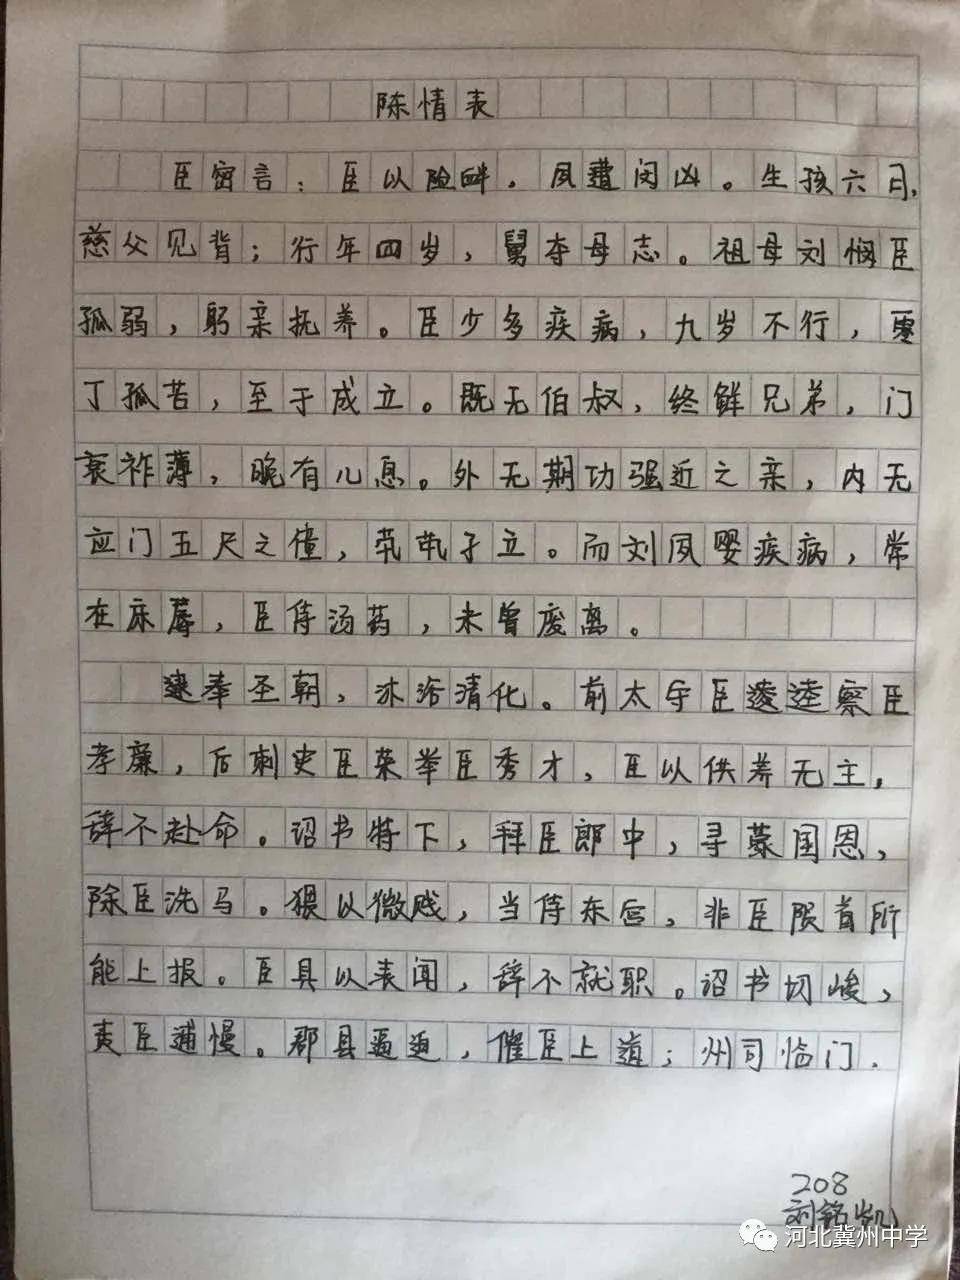 陈情表
臣密言：臣以险衅，夙遭闵凶。生孩六月，
慈父见背；行年四岁，舅夺母志。祖母刘悯臣
孤弱，躬亲抚养。臣少多疾病，九岁不行，零
丁孤苦，至于成立。既无伯叔，终鲜兄弟，门
衰祚薄，晚有儿息。外无期功强近之亲，内无
应门五尺之僮，茕茕孑立。而刘夙婴疾病，常
在床蓐，臣侍汤药，未曾废离。
逮奉圣朝，沐浴清化。前太守臣逵察臣
孝廉，后刺史臣荣举臣秀才，臣以供养无主，
辞不赴命。诏书特下，拜臣郎中，寻蒙国恩，
除臣洗马。猥以微贱，当侍东宫，非臣陨首所
能上报。臣具以表闻，辞不就职。诏书切峻，
责臣逋慢。郡县逼迫，催臣上道；州司临门，
208
刘铭凯
河北冀州中学